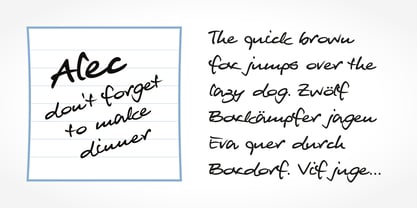 Alec
don't forget
to make
dinner
The quick brown
fox jumps over the
lazy dog. Zwölf
Boxkämpfer jagen
Eva quer durch
Boxdorf. Vif juge...